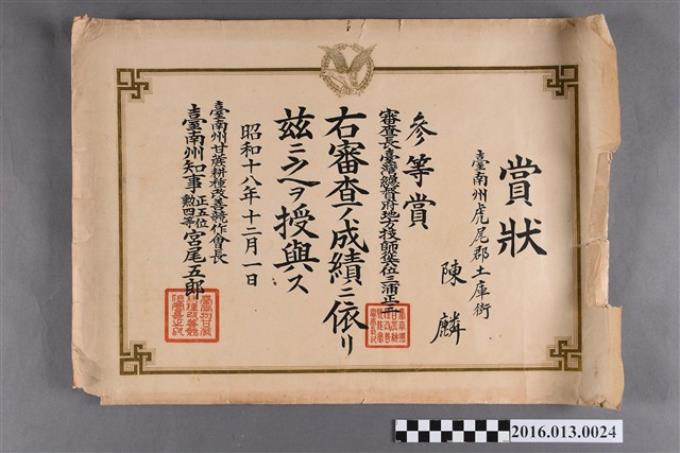 賞狀
臺南州虎尾郡土庫街
陳麟
參等賞
審查長臺灣總督府地方技師從七位三浦正二
右審查ノ成績ニ依リ
茲ニ之ヲ授與ス
昭和十八年十二月一日
臺南州甘蔗耕種改善競作會長
臺南州知事正五位勳四等宮尾五郎
2016.013.0024